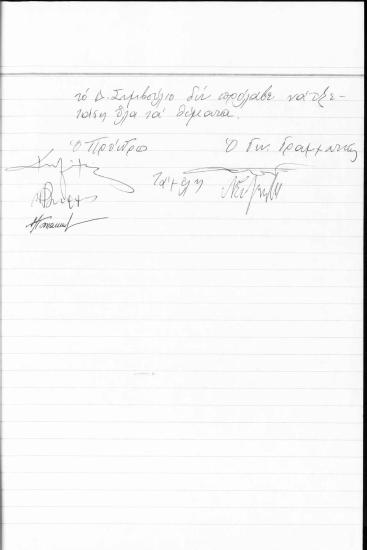 τό Δ. Συμβούλιο δέν πρόλαβε νά ἐξε-
τάση ὅλα τά θέματα.
Ὁ Πρόεδρος Ὁ Γεν. Γραμματεύς
Τά μέλη